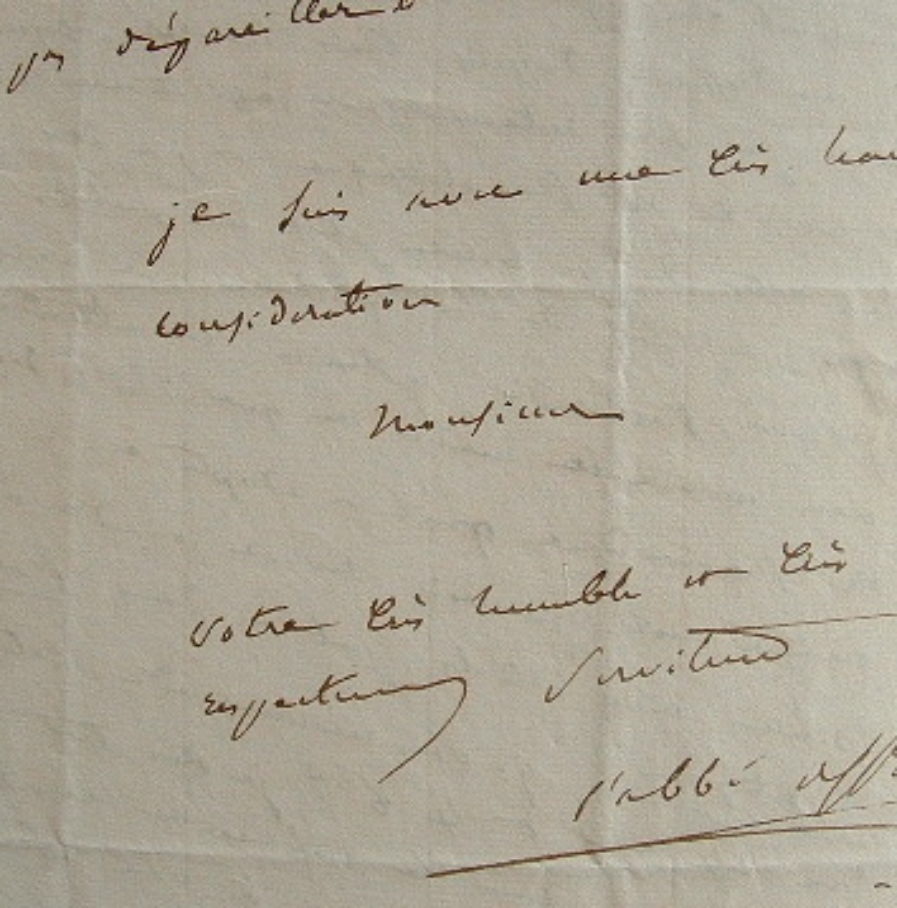 pas dépareiller
je suis avec une très hau
considération
Monsieur
votre très humble et très
respectueux serviteur
l'abbé